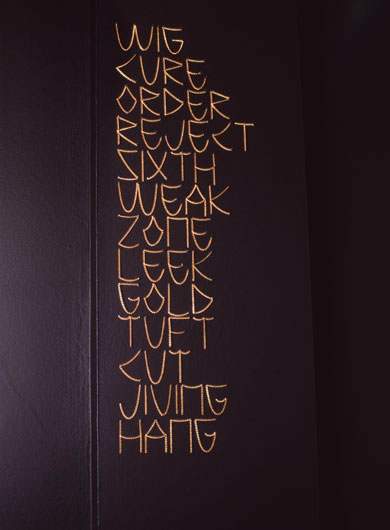 WIG
CURE
ORDER
REJECT
SIXTH
WEAK
ZONE
LEEK
GOLD
TUFT
CUT
JIVING
HANG